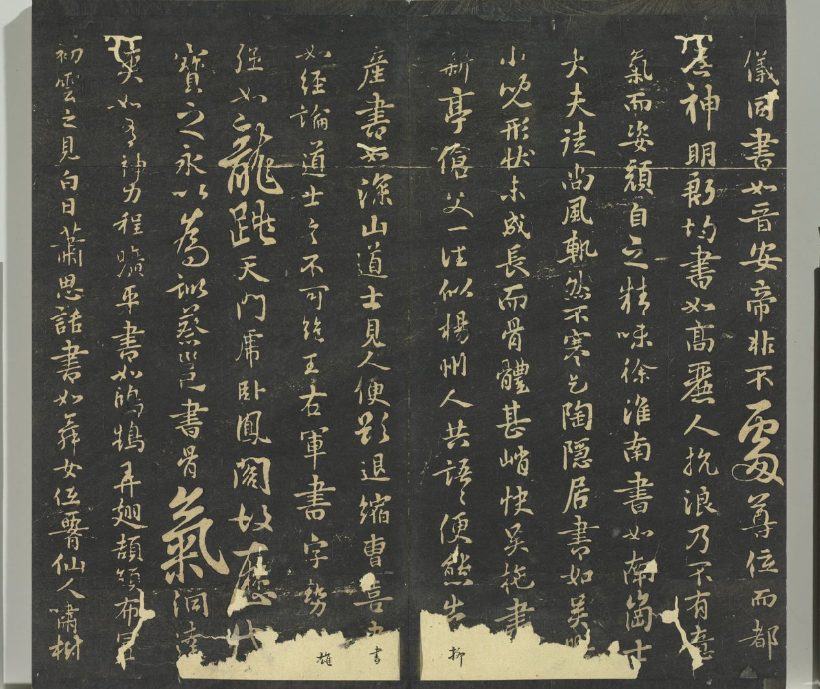 儀同書如晉安帝非不處尊位而都
無神明殷均書如高麗人抗浪乃不有意
氣而姿顏自乏精味徐淮南書如南崗士
大夫徒尚風軌然不寒乞陶隱居書如吳興
小兒形狀未成長而骨體甚峭快吳施書
新亭傖父一往似楊州人共語語便態出柳
產書如深山道士見人便欲退縮曹喜書
如經論道士言不可絕王右軍書字勢雄
強如龍跳天門虎臥鳳閣故歷代
寶之永以為訓蔡邕書骨氣洞達
爽如有神力程曠平書如鴻鵠弄翅頡頏布置
初雲之見白日蕭思話書如舞女低腰仙人嘯樹